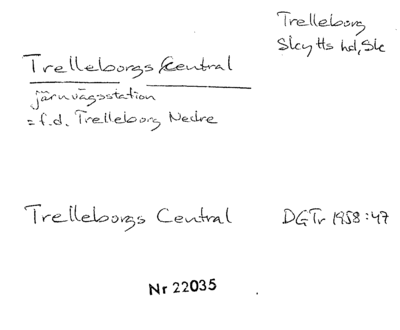 Trelleborg
Skytts hd, Sk
Trelleborgs Central
järnvägsstation
= f.d. Trelleborg Nedre
Trelleborgs Central DGTr 1958:47
Nr 22035